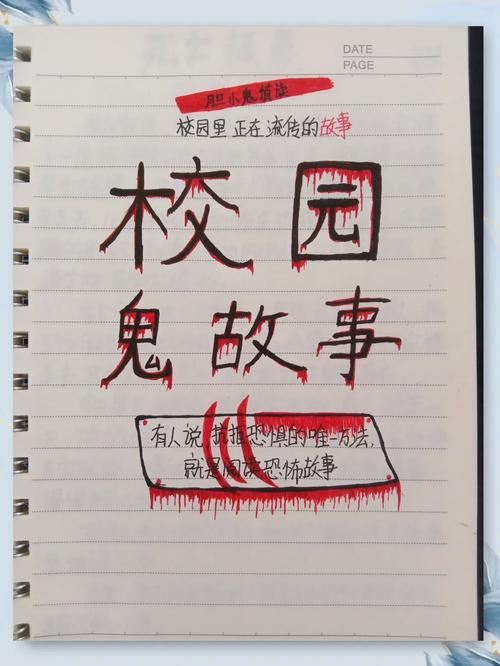 DATE
PAGE
胆小鬼慎读
校园里正在流传的故事
校园
鬼故事
有人说,抗拒恐惧的唯一方法,
就是阅读恐怖故事